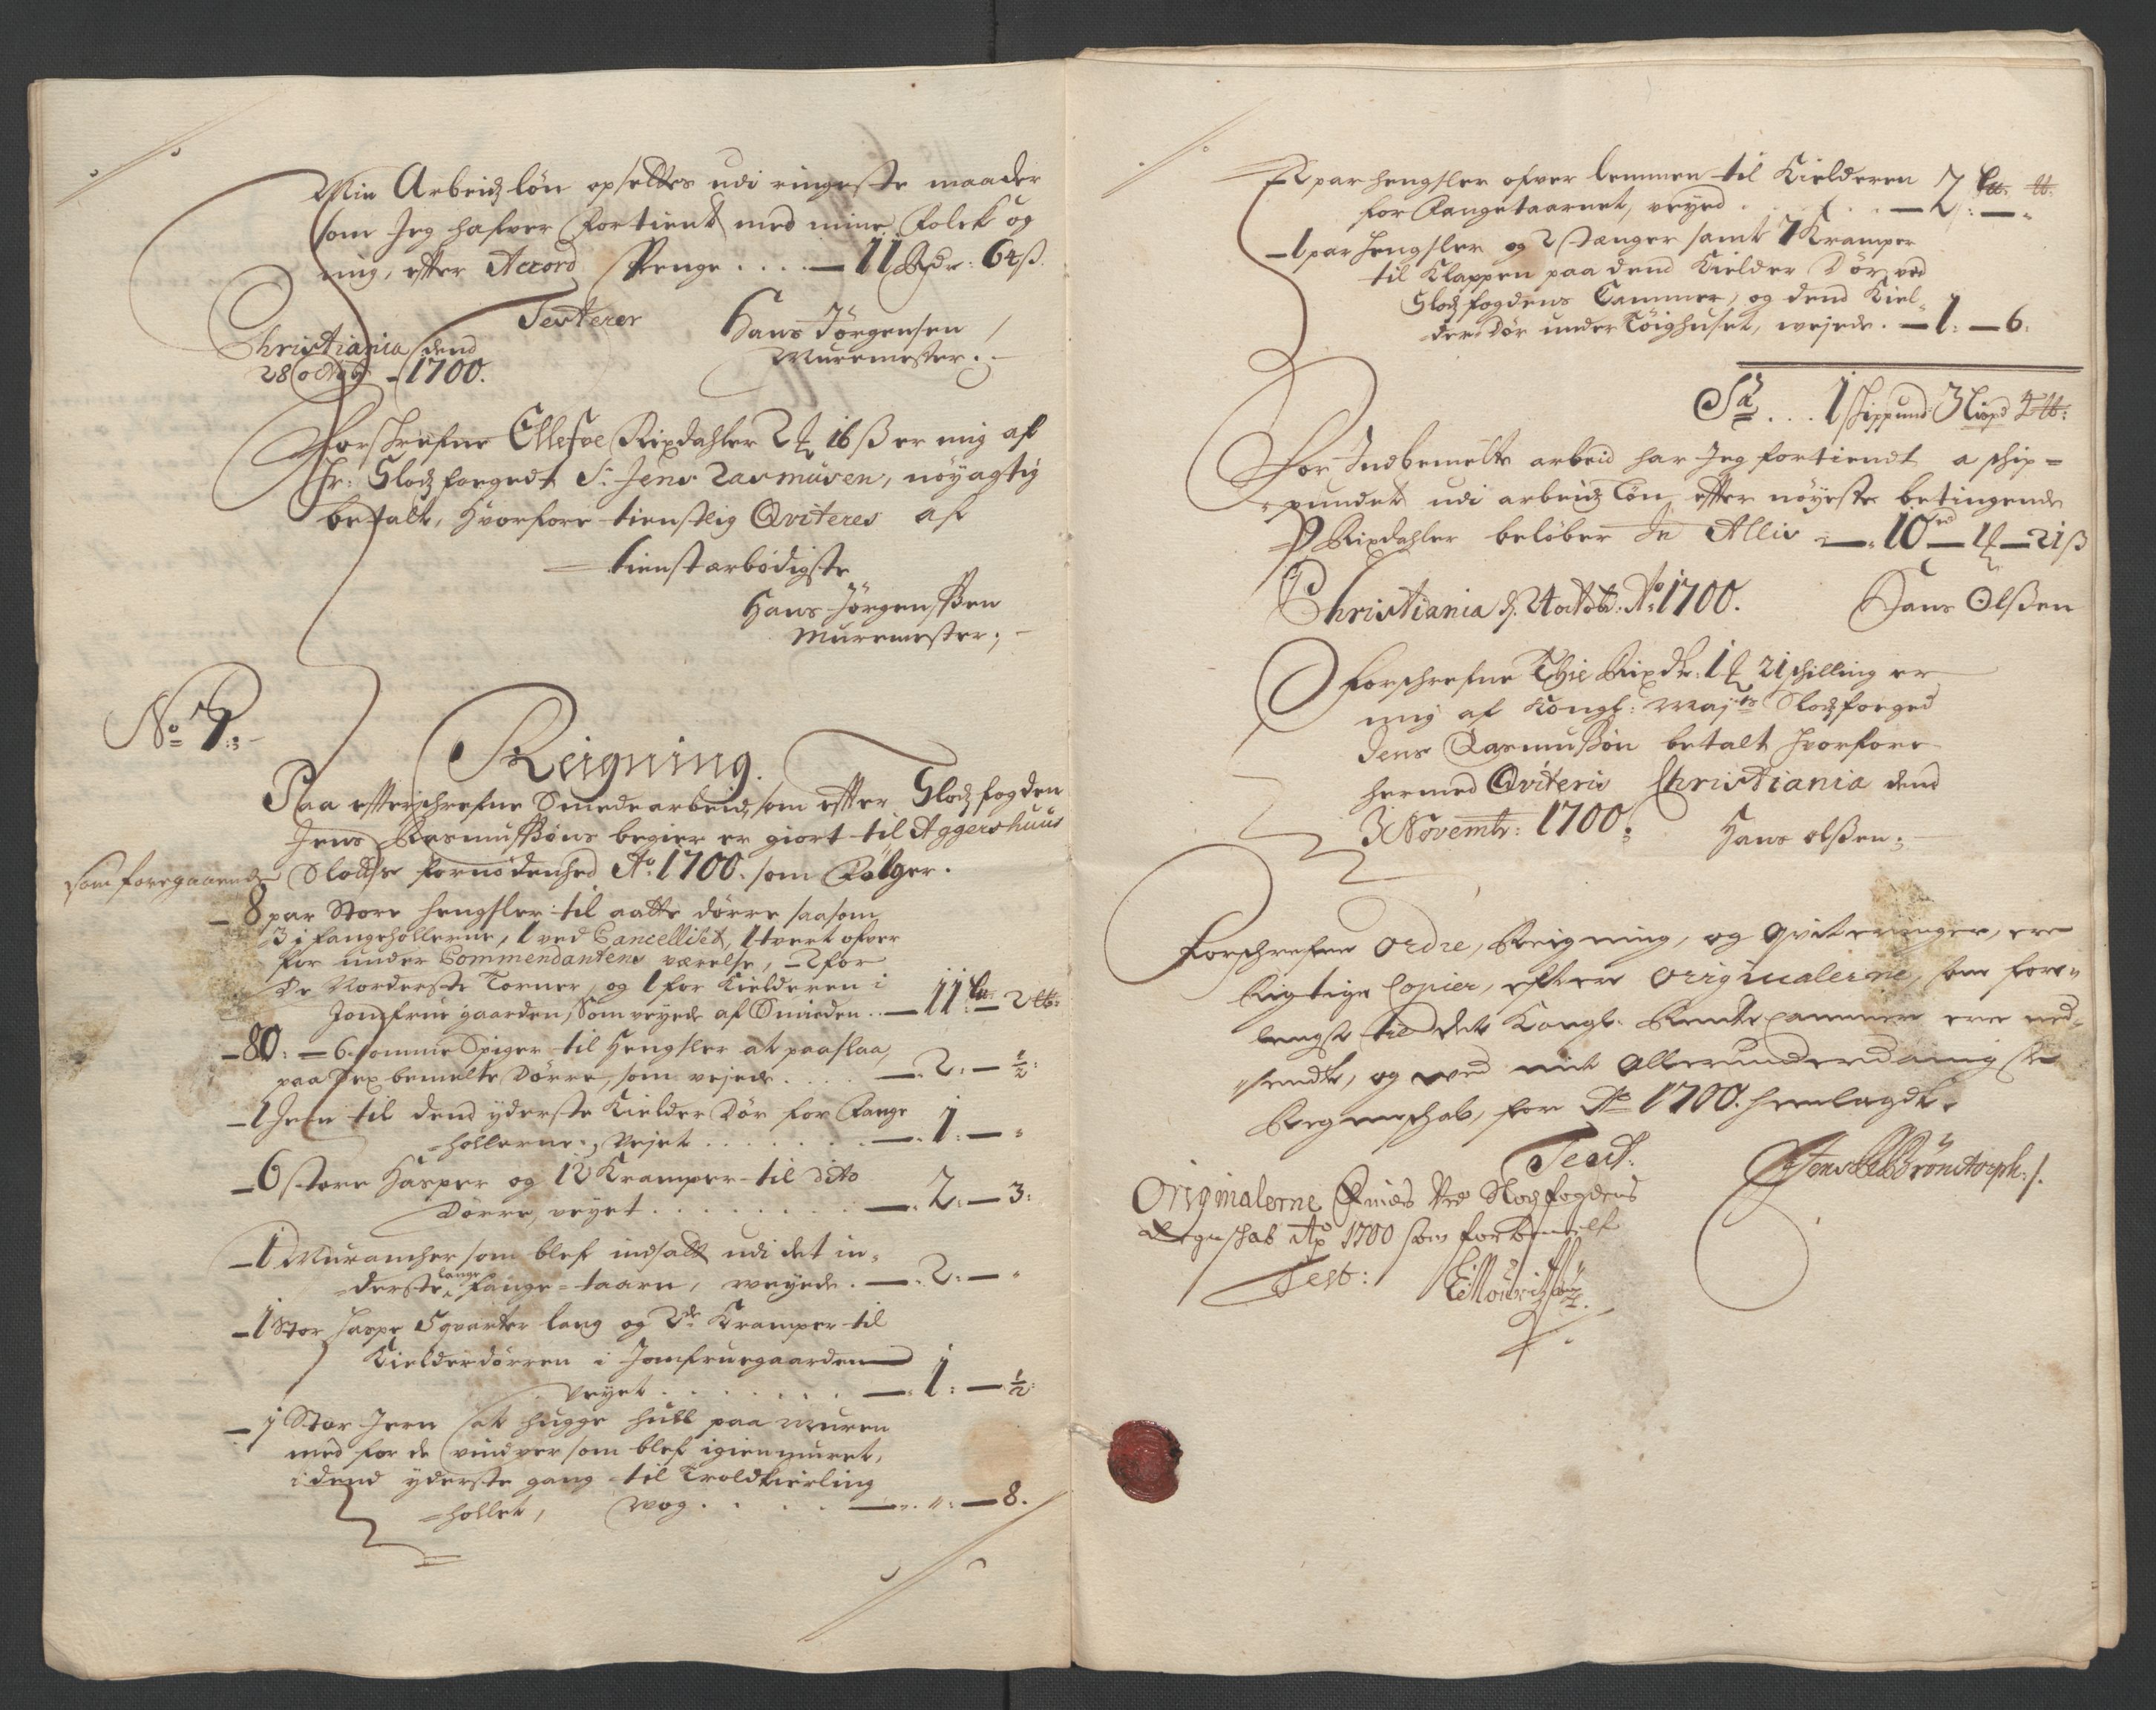 Min Arbeidtz løn opsettes udi ringeste maader
som Jeg hafver Fortient med mine Folck og
mig, efter Accord Penge . . . . — 11 Rdr: 64 ß.
Testerer
Christiania dend
28 octobr – 1700.
Hans Jörgensen /
Muremester. –
Forschrefne Ellefve Rixdahler 2 16 ß er mig af
Hr: Slodtz foegedt Sr. Jens Rasmusen, nöyagtig
betalt, hvorfore tienstlig Qviteres af
tienstarbödigste
Hans Jörgensßen
Muremester; –
No 7.
Reigning.
Paa efterschrefne Smedearbeid, som efter Slodtz fogden
Jens Rasmussøns begier er giort til Aggershuus
som foregaaende Slottsz fornödenhed Ao. 1700. som Følger.
– 8 par Store hengsler til aatte dörre saasom
3 i fangehollerne, 1 ved Cancelliet, 1 tvert ofver
for under Commendantens værelse, – 2 for
De Norderste Torner, og 1 for Kielderen i
Jomfrue gaarden, Som veyede af Smeden . . — 11 – 2 tt:
– 80: – 6. tomme Spiger til Hengsler at paaslaa,
paa Sex bemelte Dörre, som vejede . . . . — 2: – ½:
– 1 Jern til dend yderste Kielder Dör for Fange
hollerne, Vejet . . . . . . . — 1: – "
– 6 store Hasper og 12 Kramper til dito
Dörre, veyet . . . . . . . . — 2: – 3:
– 1 Murancher som blef indsatt udi det in-
derste lange fange-taarn, weyede . — 2: – "
– 1 Stor Haspe 5 qvarter lang og 2de Kramper til
Kielderdörren i Jomfruegaarden
Veyet . . . . . . . — 1: – ½:
– 1 Stor Jern at hugge hull paa muren
med for de vinduer som blef igien muret,
i dend yderste gang til Troldkierling
hollet, wog . . . . — " : – 8.
– 2 par hengsler ofver lemmen til Kielderen
for Fangetaarnet, veyed . . . . — 2: – "
– 1 par Hengsler og 2 Stanger samt 7 Kramper
til Klappen paa dend Kielder Dör ved
Slodtz fogdens Cammer, og dend Kiel-
der Dör under Töighuset, weiede . — 1: – 6:
Sa . . . 1 schippund 3 lispd 4 tt:
For Indbemelte arbeid har Jeg fortiendt a schip-
pundet udi arbeidtz løn, efter nöyeste betingende
9 Rixdahler belöber In Alles — 10 rd – 1 – 21 ß
Christiania d. 24 octobr. Ao 1700. Hans Olßen
Forschrefne Thie Rixdr: 1 21 schilling er
mig af Kongl: Mayts Slodtzfoeged
Jens Rasmußøn betalt hvorfore
hermed Qviteris Christiania dend
3 Novembr: 1700. Hans olßen;
Forschrefne Ordre, Reigning, og Qviteringer, ere
Rigtige Copier, efter Originalerne, som for-
lengst til det Kongl. Rentecammer ere ned-
sendt, og ved mit Allerunderdanigste
Regenschab, for Ao 1700. henlagdt.
Test.
Originalerne Findes Ved Slodtzfogdens
Regnschab Ao 1700 som forbemelt
Test: